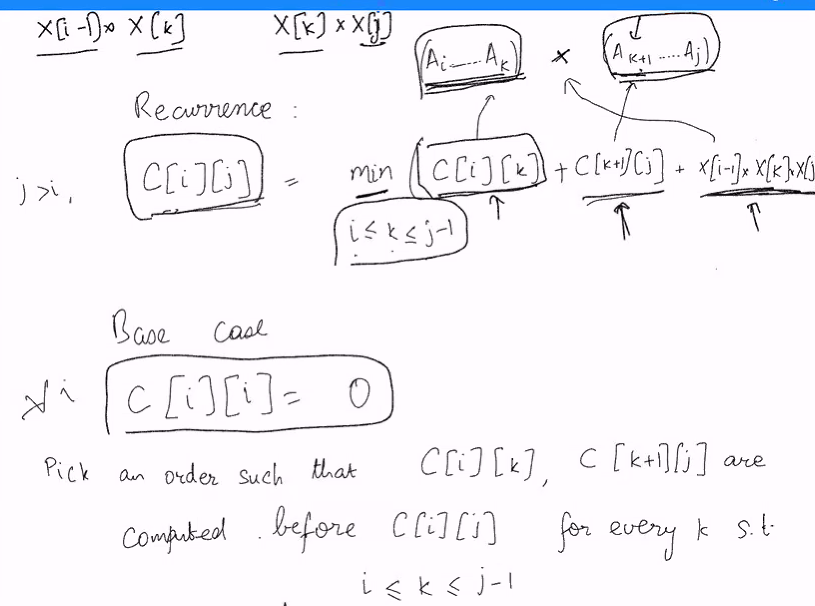 X[i-1] × X[k] X[k] × X[j]
(A_i ..... A_k) × (A_k+1 ..... A_j)
Recurrence :
j > i, C[i][j] = min ( C[i][k] + C[k+1][j] + X[i-1] × X[k] × X[j
i ≤ k ≤ j-1
Base case
∀ i C[i][i] = 0
Pick an order such that C[i][k], C[k+1][j] are
computed before C[i][j] for every k s.t.
i ≤ k ≤ j-1